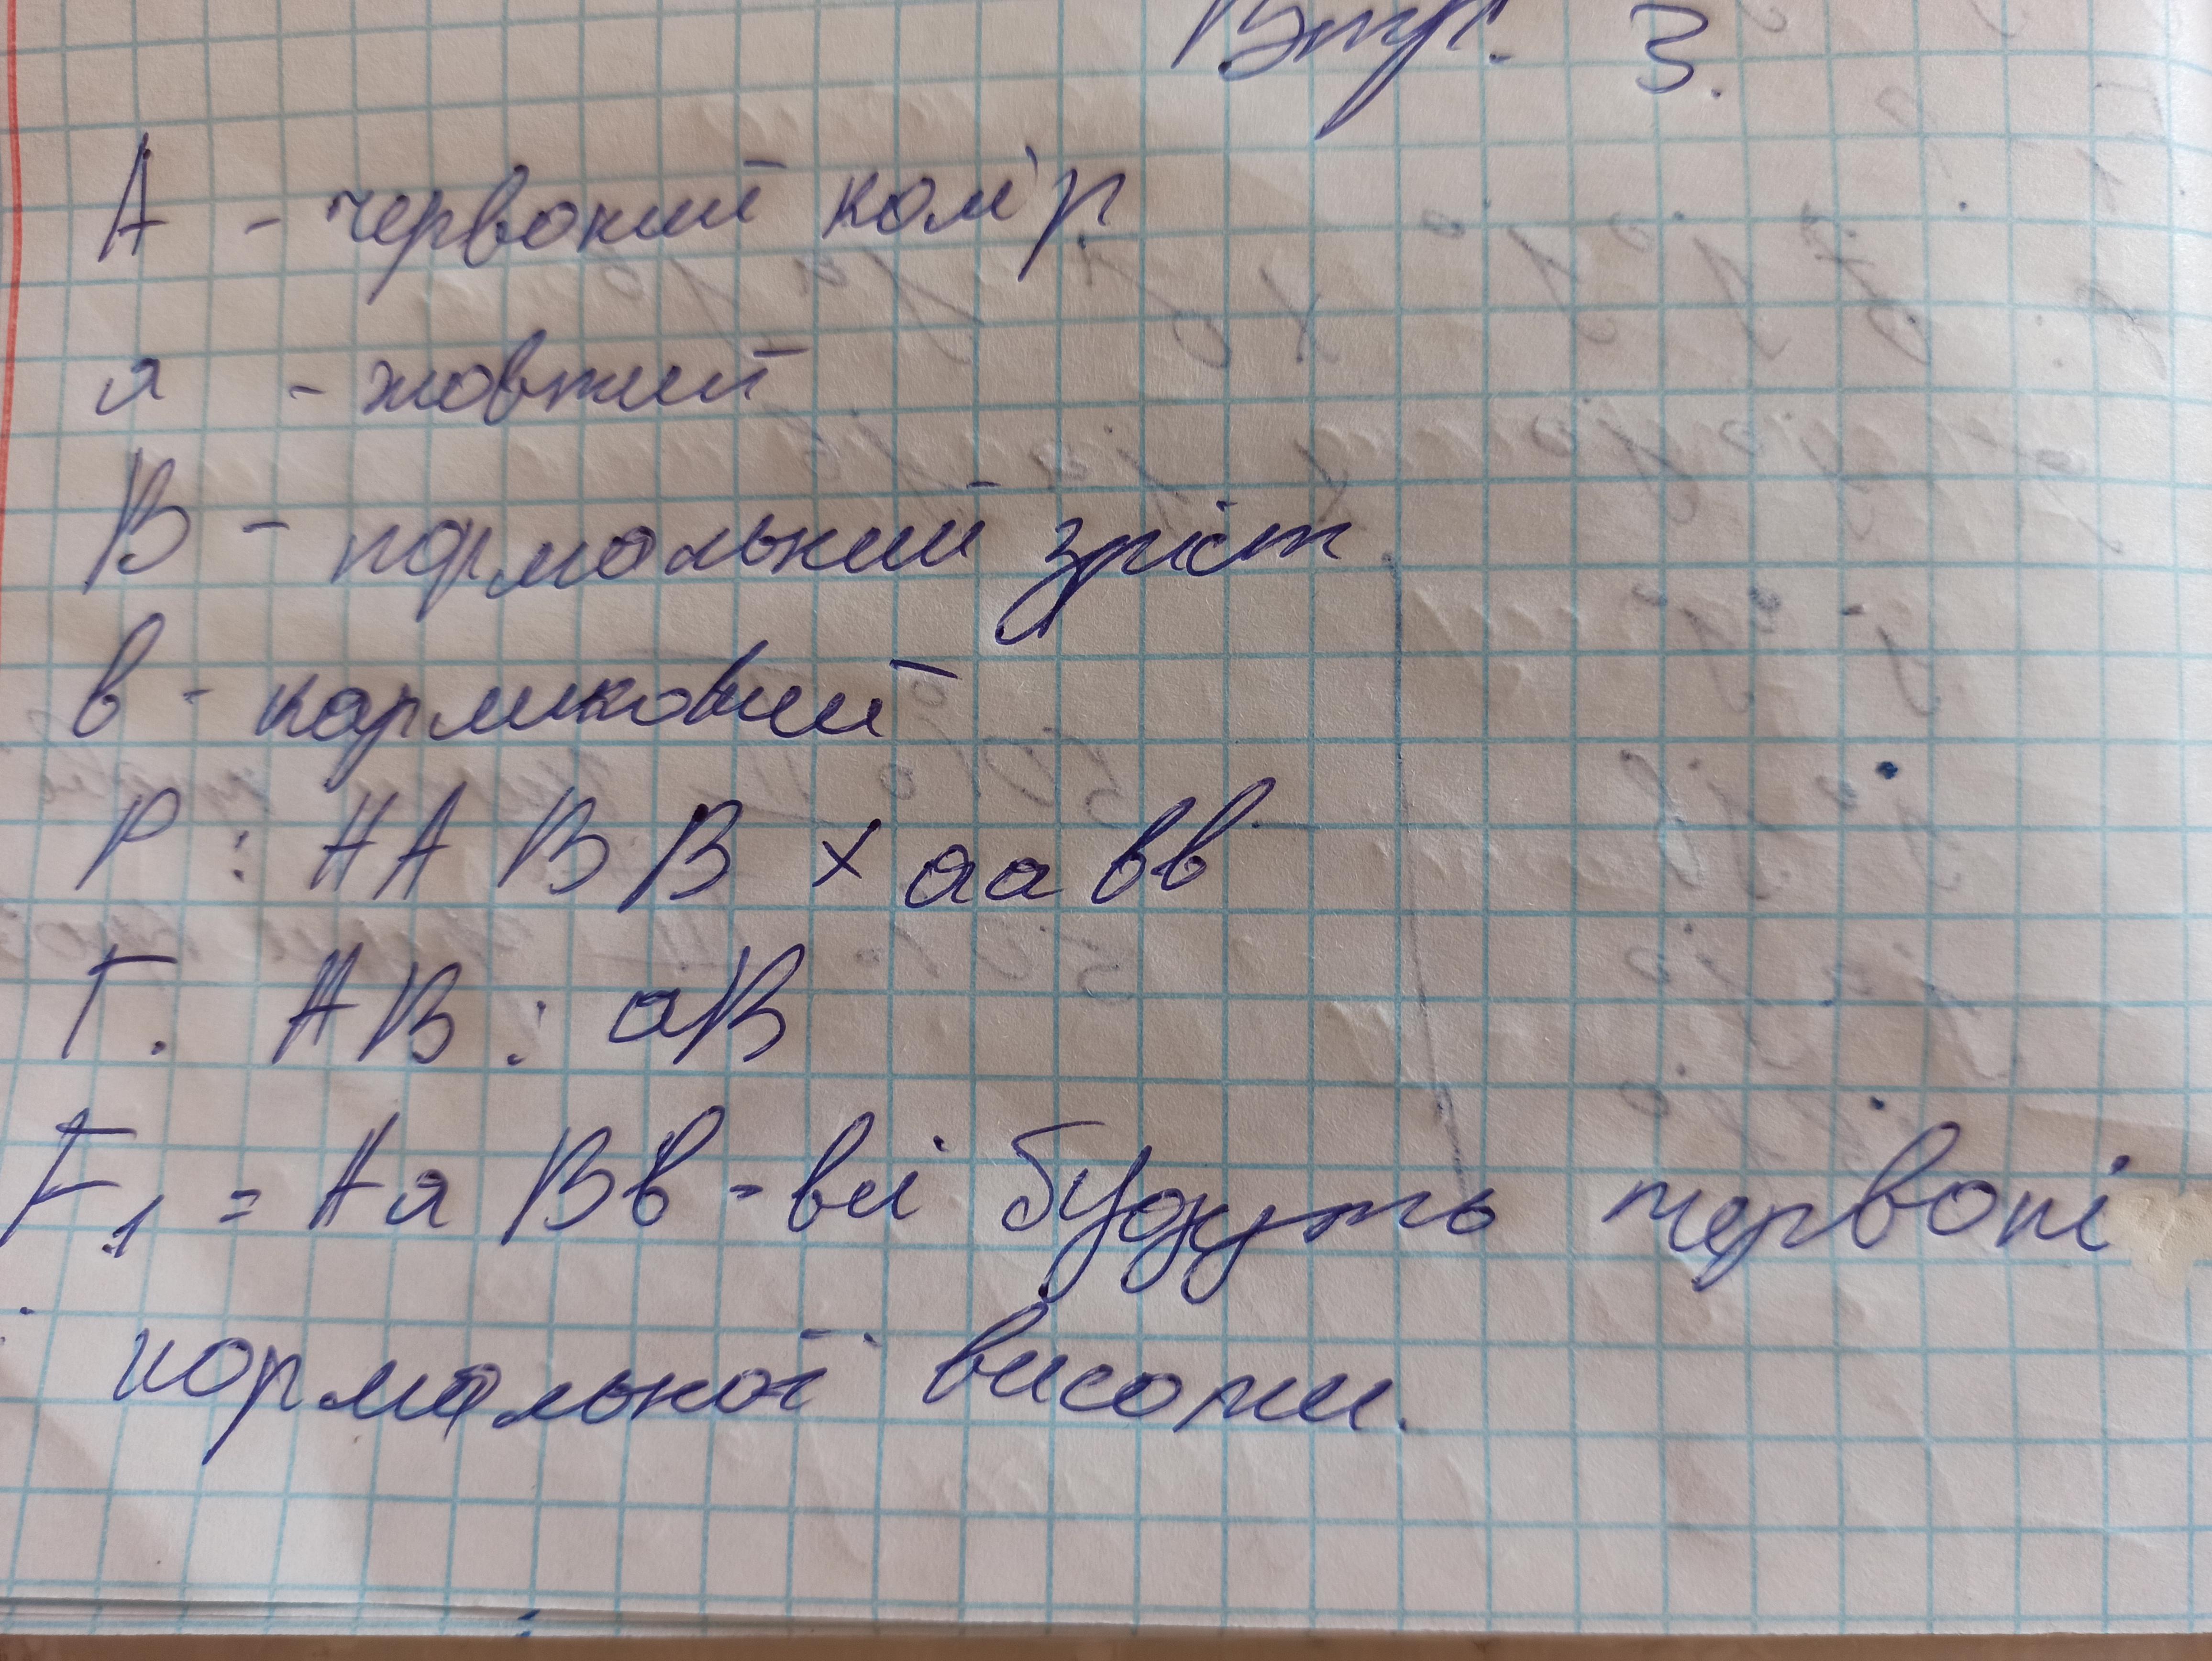 Впр. 3.
А - червоний колір
а - жовтий
В - нормальний зріст
в - карликовий
Р: АА ВВ х аа вв
Г. АВ : аВ
F1 = Аа Вв - всі будуть червоні
і нормальної висоти.